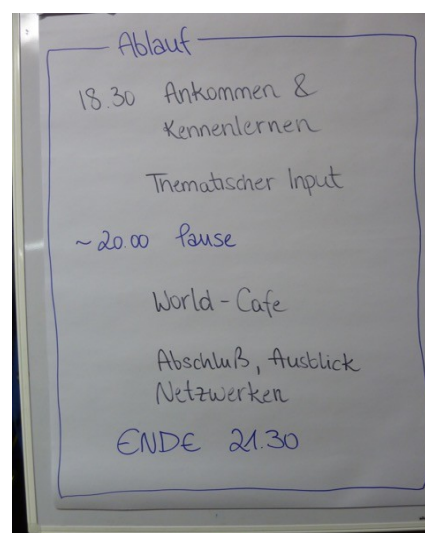 Ablauf
18.30 Ankommen &
Kennenlernen
Thematischer Input
~ 20.00 Pause
World - Cafe
Abschluß, Ausblick
Netzwerken
ENDE 21.30